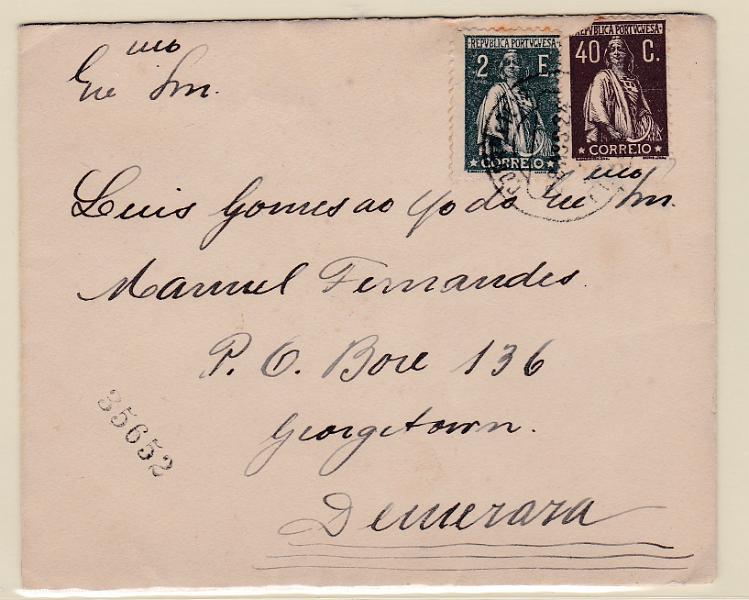 REPVBLICA PORTVGVESA
2 E.
CORREIO
REPVBLICA PORTVGVESA
40 C.
CORREIO
Exmo Snr.
Luis Gomes ao c/o do Exmo Snr.
Manuel Fernandes
P. O. Box 136
Georgetown.
Demerara
35652